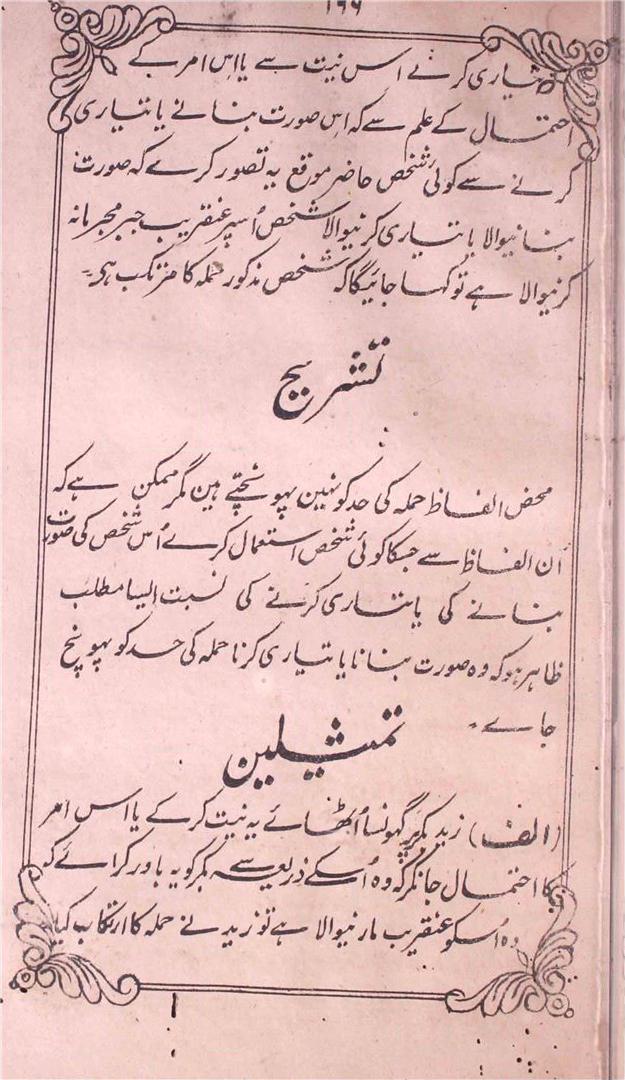 ۱۶۶
تیاری کرے اس نیت سے یا اِس امر کے
احتمال کے علم سے کہ اِس صورت بنانے یا تیاری
کرنے سے کوئی شخص حاضر موقع یہ تصور کرے کہ صورت
بنانیوالا یا تیاری کرنیوالا شخص اُسپر عنقریب جبر مجرمانہ
کرنیوالا ہے تو کہا جائیگا کہ شخص مذکور حملہ کا مرتکب ہی۔
تشریح
محض الفاظ حملہ کی حد کو نہین پہونچتے ہین مگر ممکن ہے کہ
اُن الفاظ سے جسکا کوئی شخص استعمال کرے اُس شخص کی صورت
بنانے کی یا تیاری کرنے کی نسبت ایسا مطلب
ظاہر ہو کہ وہ صورت بنانا یا تیاری کرنا حملہ کی حد کو پہونچ
جاے۔
تمثیلین
(الف) زید بکر پر گہونسا اُٹھائے یہ نیت کر کے یا اس امر
کا احتمال جانکر کہ وہ اُسکے ذریعہ سے بکر کو یہ باور کرائے کہ
وہ اُسکو عنقریب مارنیوالا ہے تو زید نے حملہ کا ارتکاب کیا۔